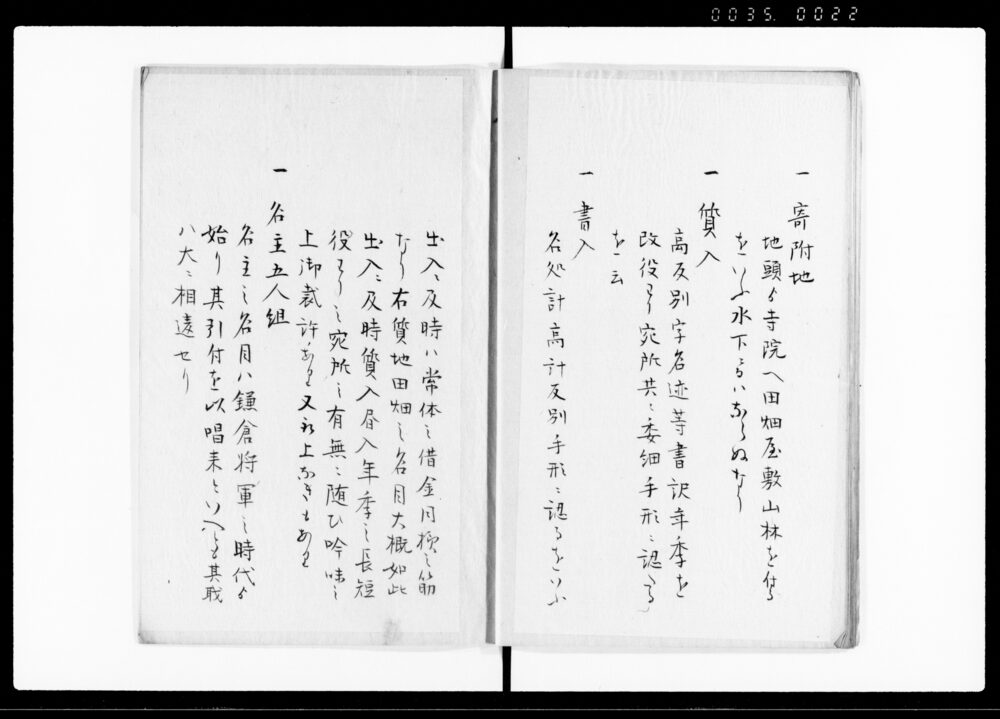 0035. 0022
一 寄附地
地頭ゟ寺院ヘ田畑屋敷山林を付る
をいふ水下ニハならぬなり
一 質入
高反別字名迹等書訳年季を
改役印宛所共ニ委細手形ニ認る
を云
一 書入
名処計高計反別手形ニ認るをいふ
出入ニ及時ハ常体之借金同様之筋
なり右質地田畑之名目大概如此
出入ニ及時質入書入年季之長短
役印之宛所之有無ニ随ひ吟味之
上御裁許あり又取上なきもあり
一 名主五人組
名主之名目ハ鎌倉将軍之時代ゟ
始り其引付を以唱来といへとも其職
ハ大ニ相違セリ